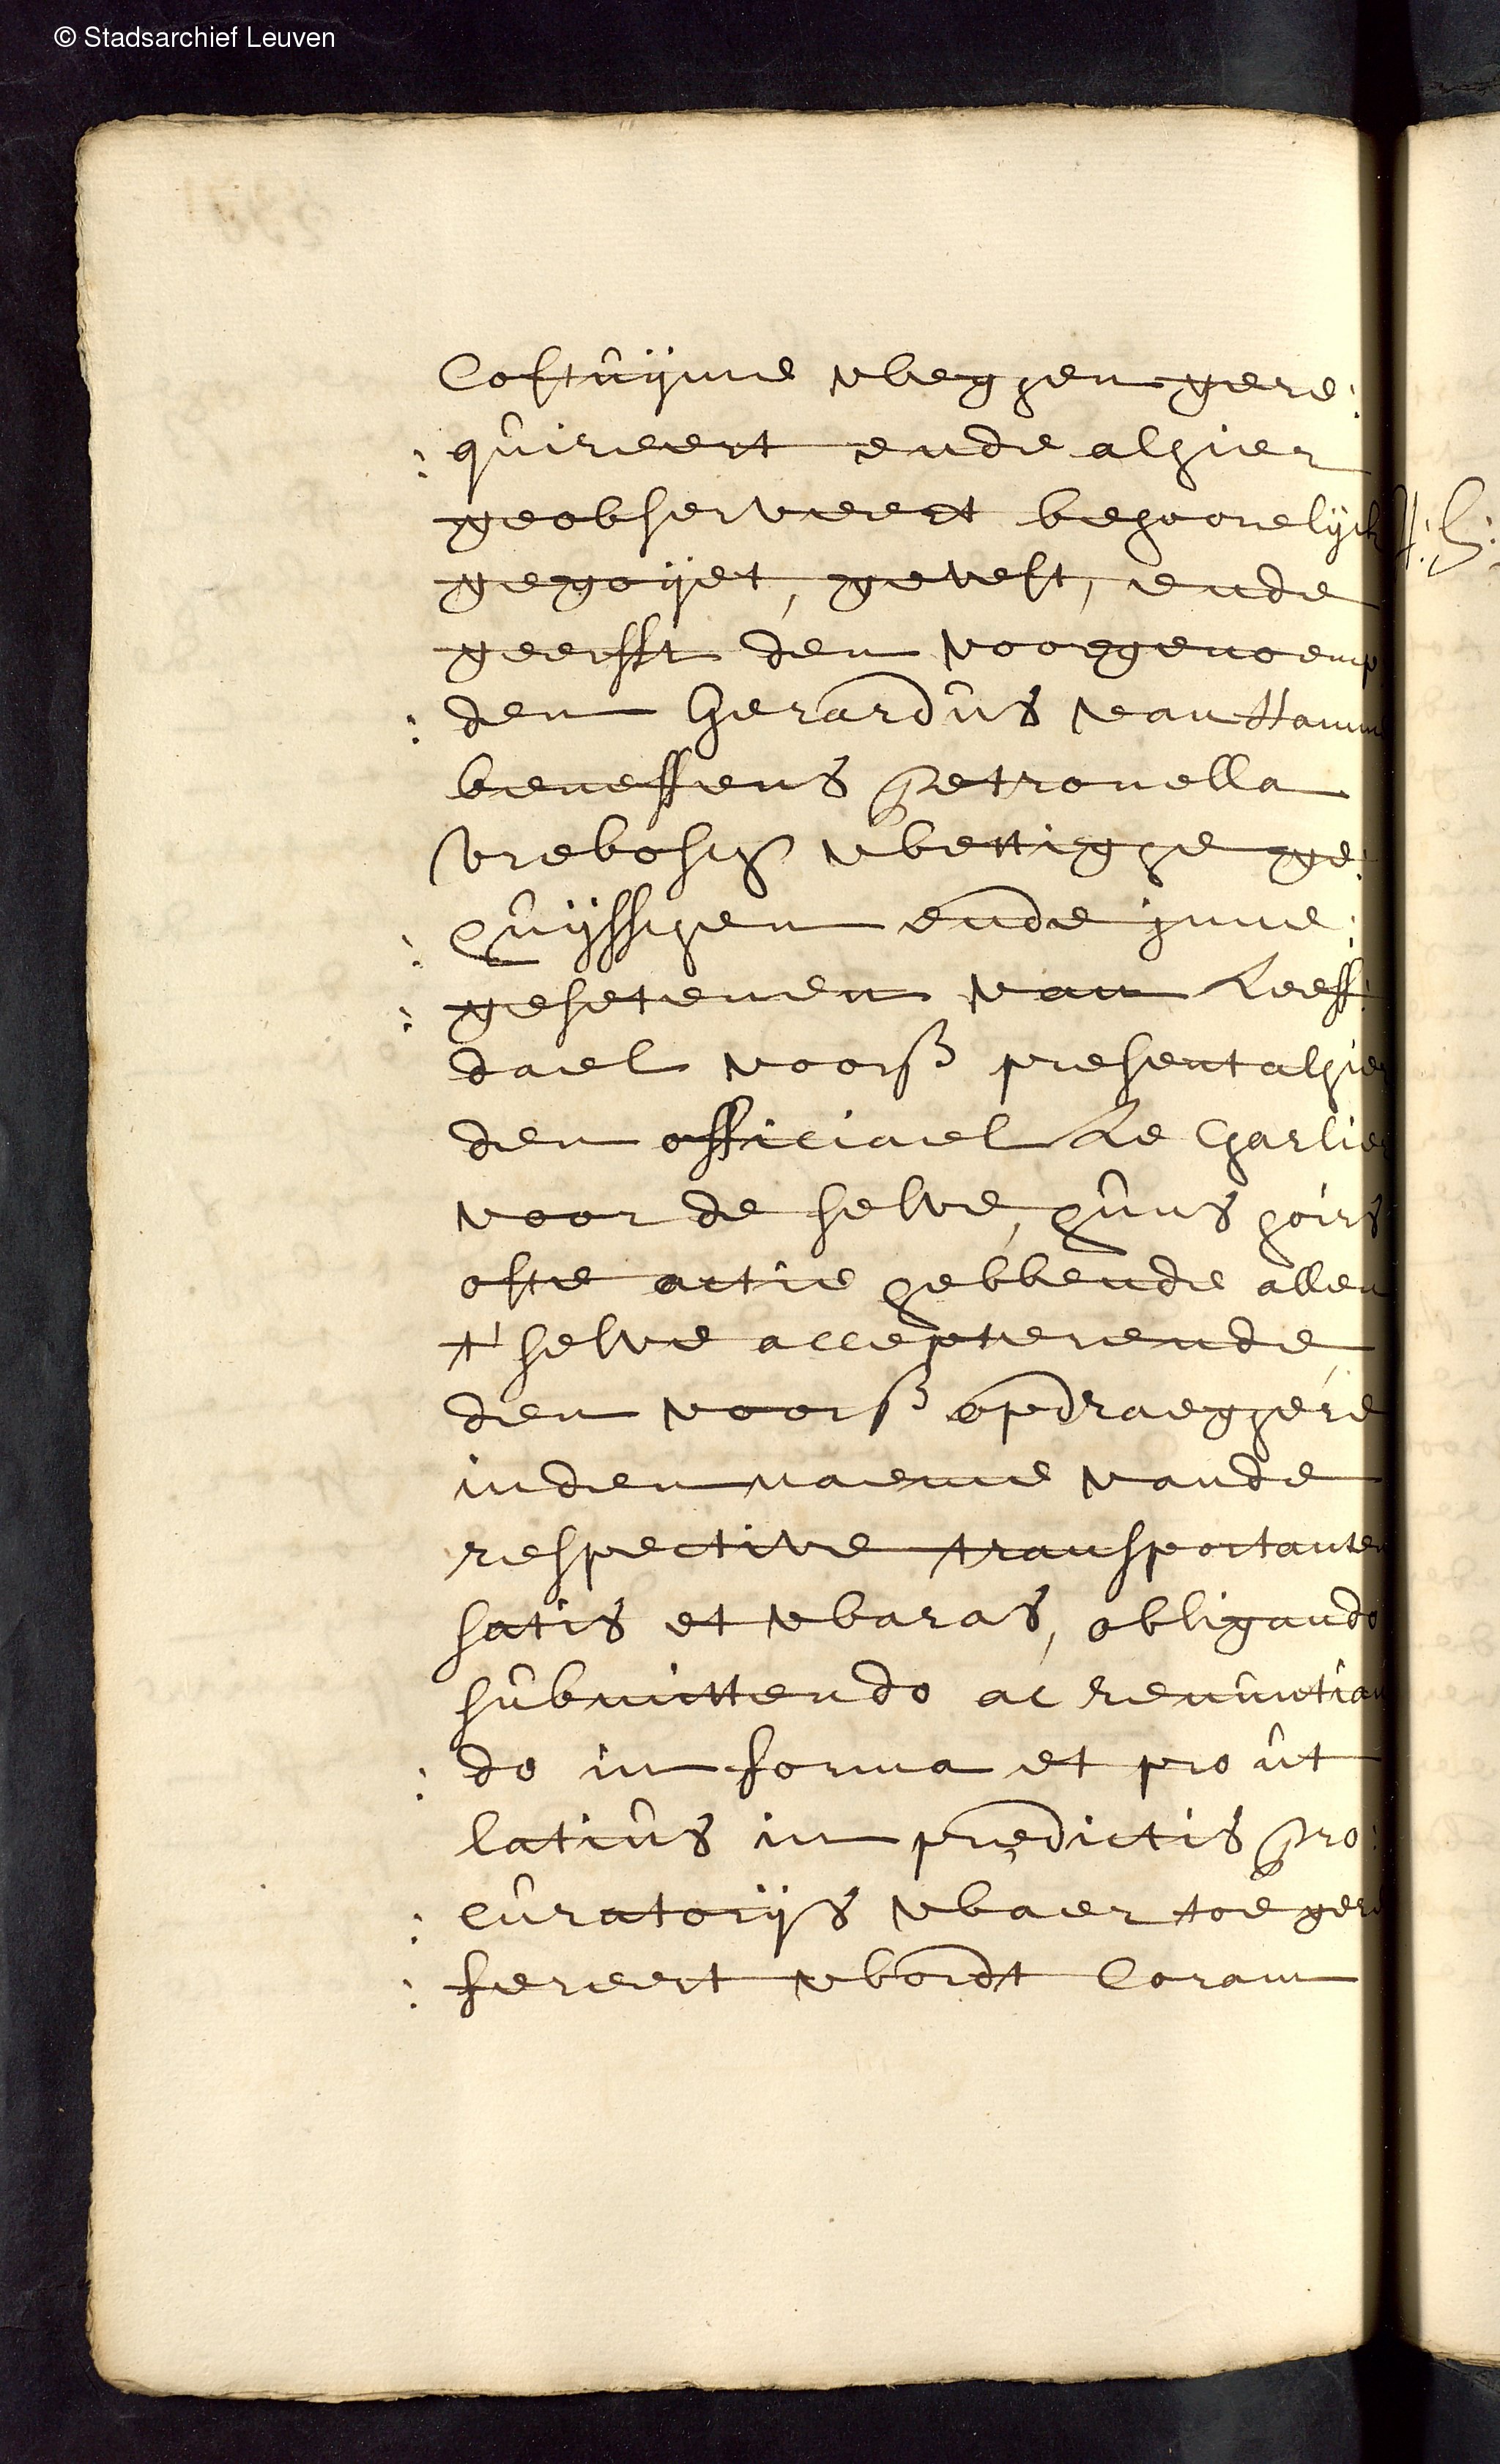 © Stadsarchief Leuven
Costuijme weghen gere:
:quireert ende alhier
geobserveert behoorelijck
gegoijet, gevest, ende
geerfft den voorgenoemp
:den Gerardus van Hamme
beneffens Petronella
Vreboschs wettighe ge:
:huijsschen ende inne:
:gesetenen van Leeff:
dael voors present alhier
den officiael Le Charlier
voor de selve, huns hoirs
ofte actie hebbende allen
t'selve accepterende,
den voors opdraeghere
inden naeme vande
respective transportanten
satis et waras, obligando
submittendo ac renuntian
:do in forma et pro ut
latius in predictis Pro:
:curatorijs waer toe gere
:fereert wordt Coram